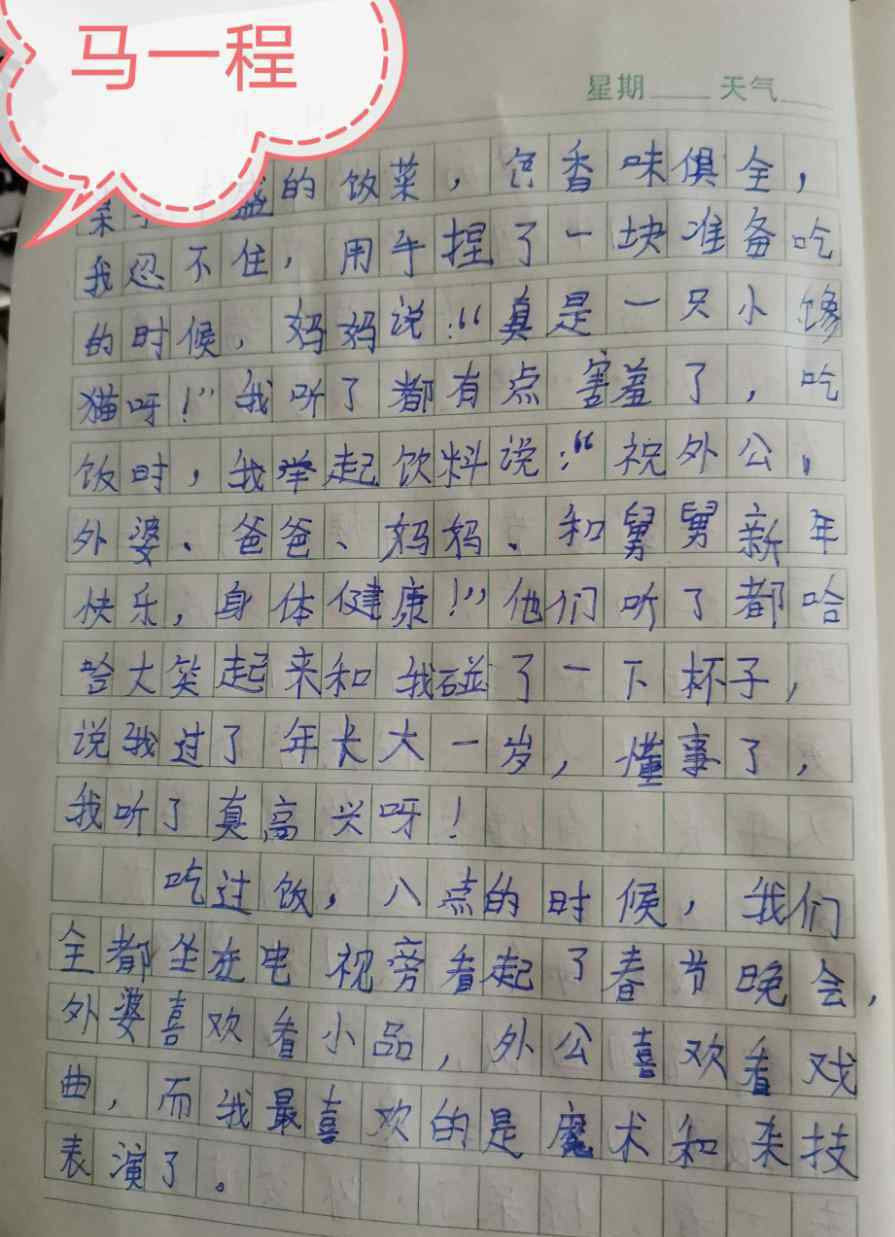 马一程
星期 天气
盛的饮菜，色香味俱全，
我忍不住，用手捏了一块准备吃
的时候，妈妈说：“真是一只小馋
猫呀！”我听了都有点害羞了，吃
饭时，我举起饮料说：“祝外公、
外婆、爸爸、妈妈、和舅舅新年
快乐，身体健康！”他们听了都哈
哈大笑起来和我碰了一下杯子，
说我过了年长大一岁，懂事了，
我听了真高兴呀！
吃过饭，八点的时候，我们
全都坐在电视旁看起了春节晚会，
外婆喜欢看小品，外公喜欢看戏
曲，而我最喜欢的是魔术和杂技
表演了。